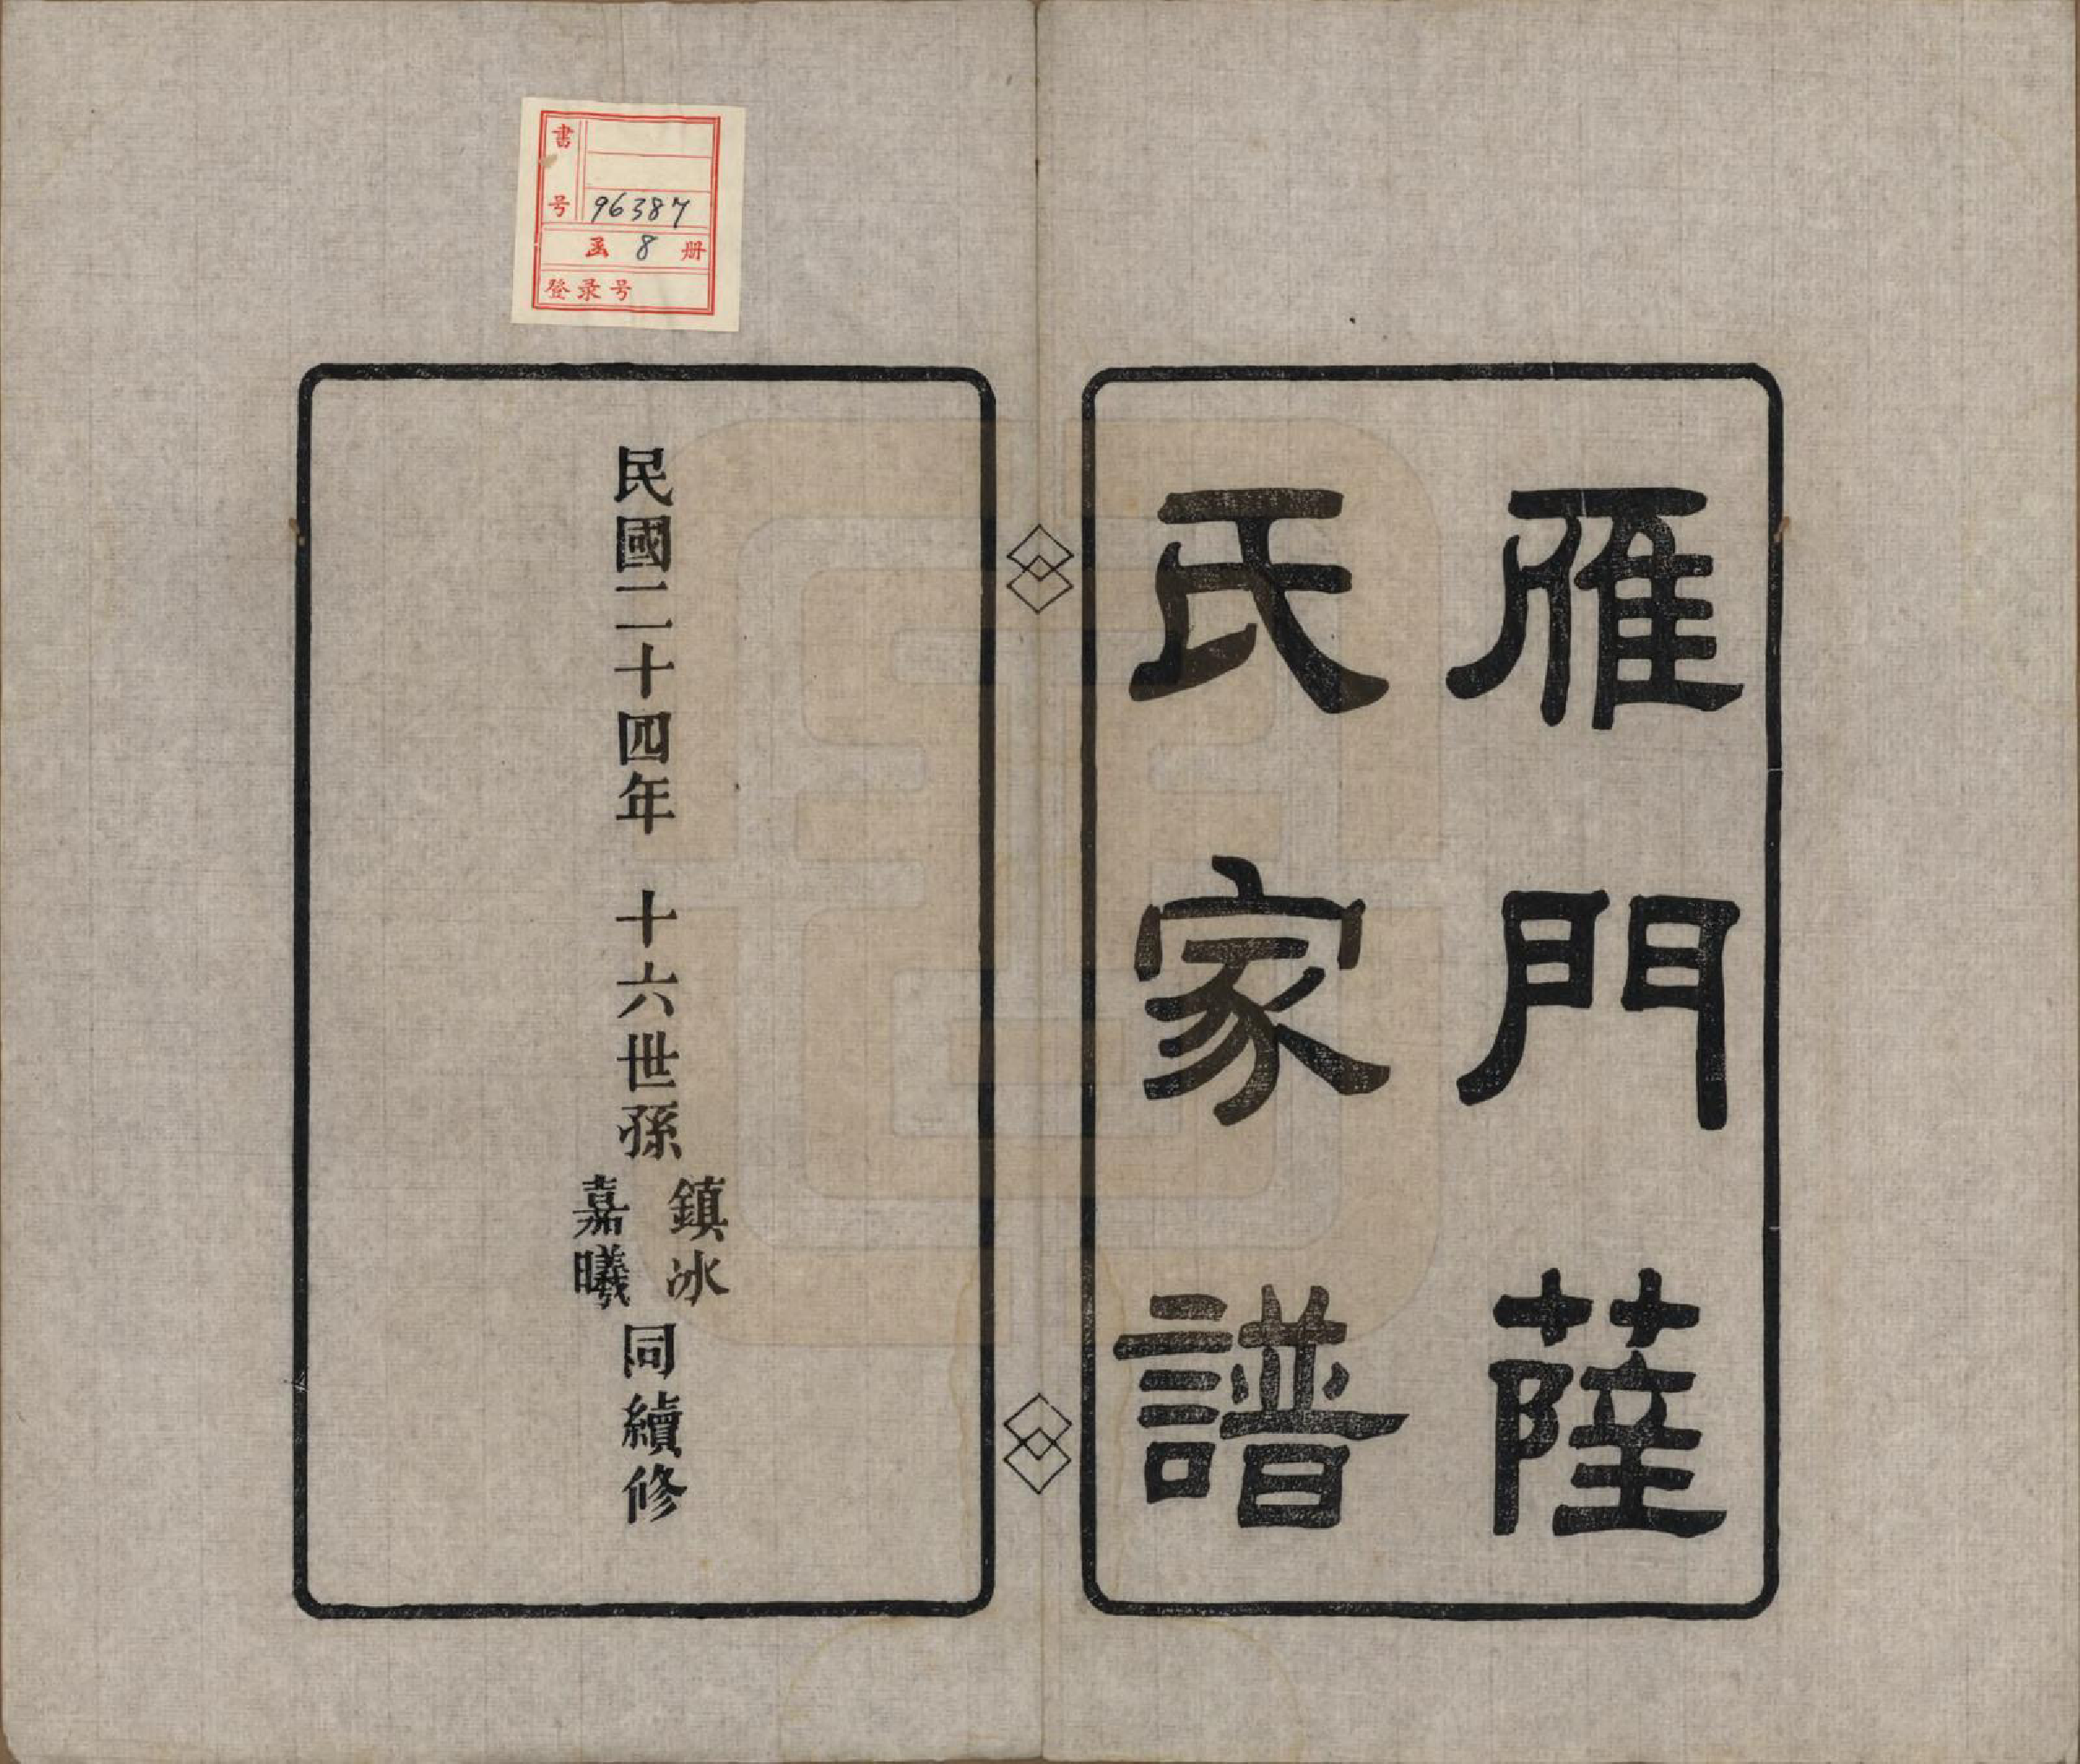 雁門薩
氏家譜
民國二十四年 十六世孫
鎮冰
嘉曦
同續修
書号 96387
函 8 册
登录号